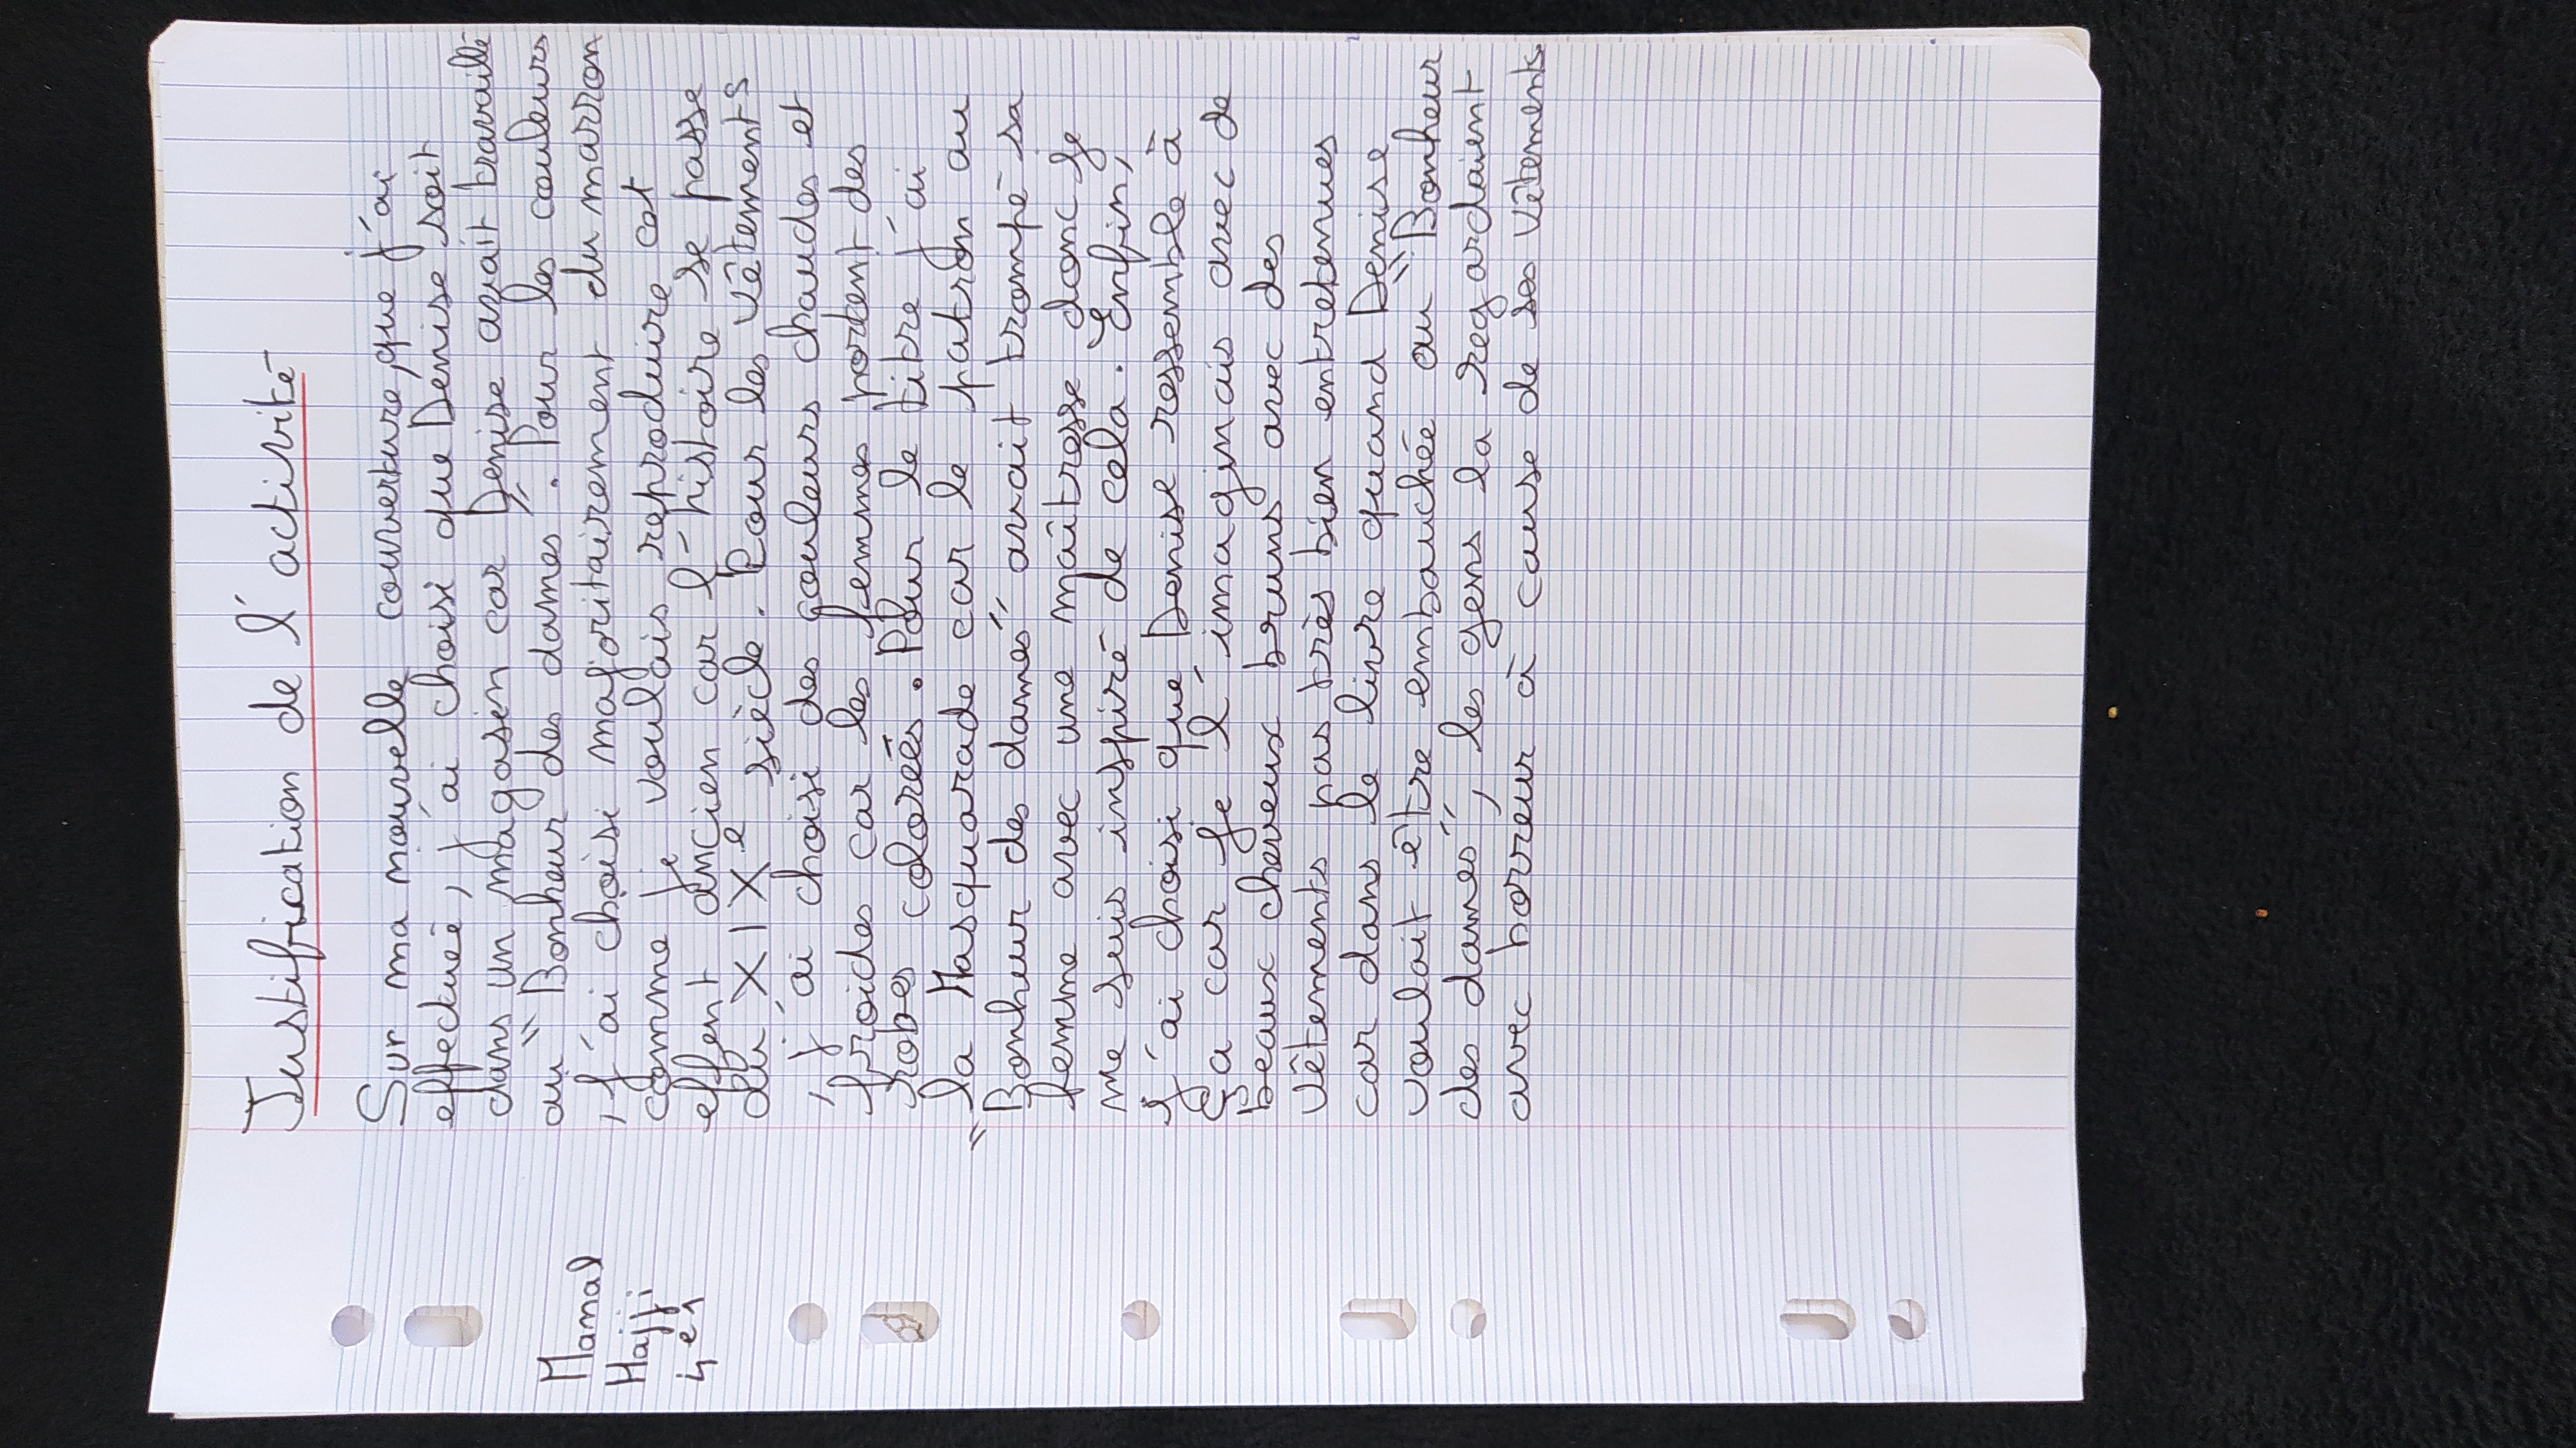 Justification de l'activité
Manal
Hajji
4e1
Sur ma nouvelle couverture, que j'ai
effectuée, j'ai choisi que Denise soit
dans un magasin car Denise avait travaillé
au "Bonheur des dames". Pour les couleurs
, j'ai choisi majoritairement du marron
comme je voulais reproduire cet
effent ancien car l'histoire se passe
du XIXe siècle. Pour les vêtements
, j'ai choisi des couleurs chaudes et
froides car les femmes portent des
robes colorées. Pour le titre j'ai
la Masquarade car le patron au
"Bonheur des dames" avait trompé sa
femme avec une maîtresse donc je
me suis inspiré de cela. Enfin,
j'ai choisi que Denise ressemble à
ça car je l'imaginais avec de
beaux cheveux bruns avec des
vêtements pas très bien entretenues
car dans le livre quand Denise
voulait être embauchée au "Bonheur
des dames", les gens la regardaient
avec horreur à cause de ses vêtements